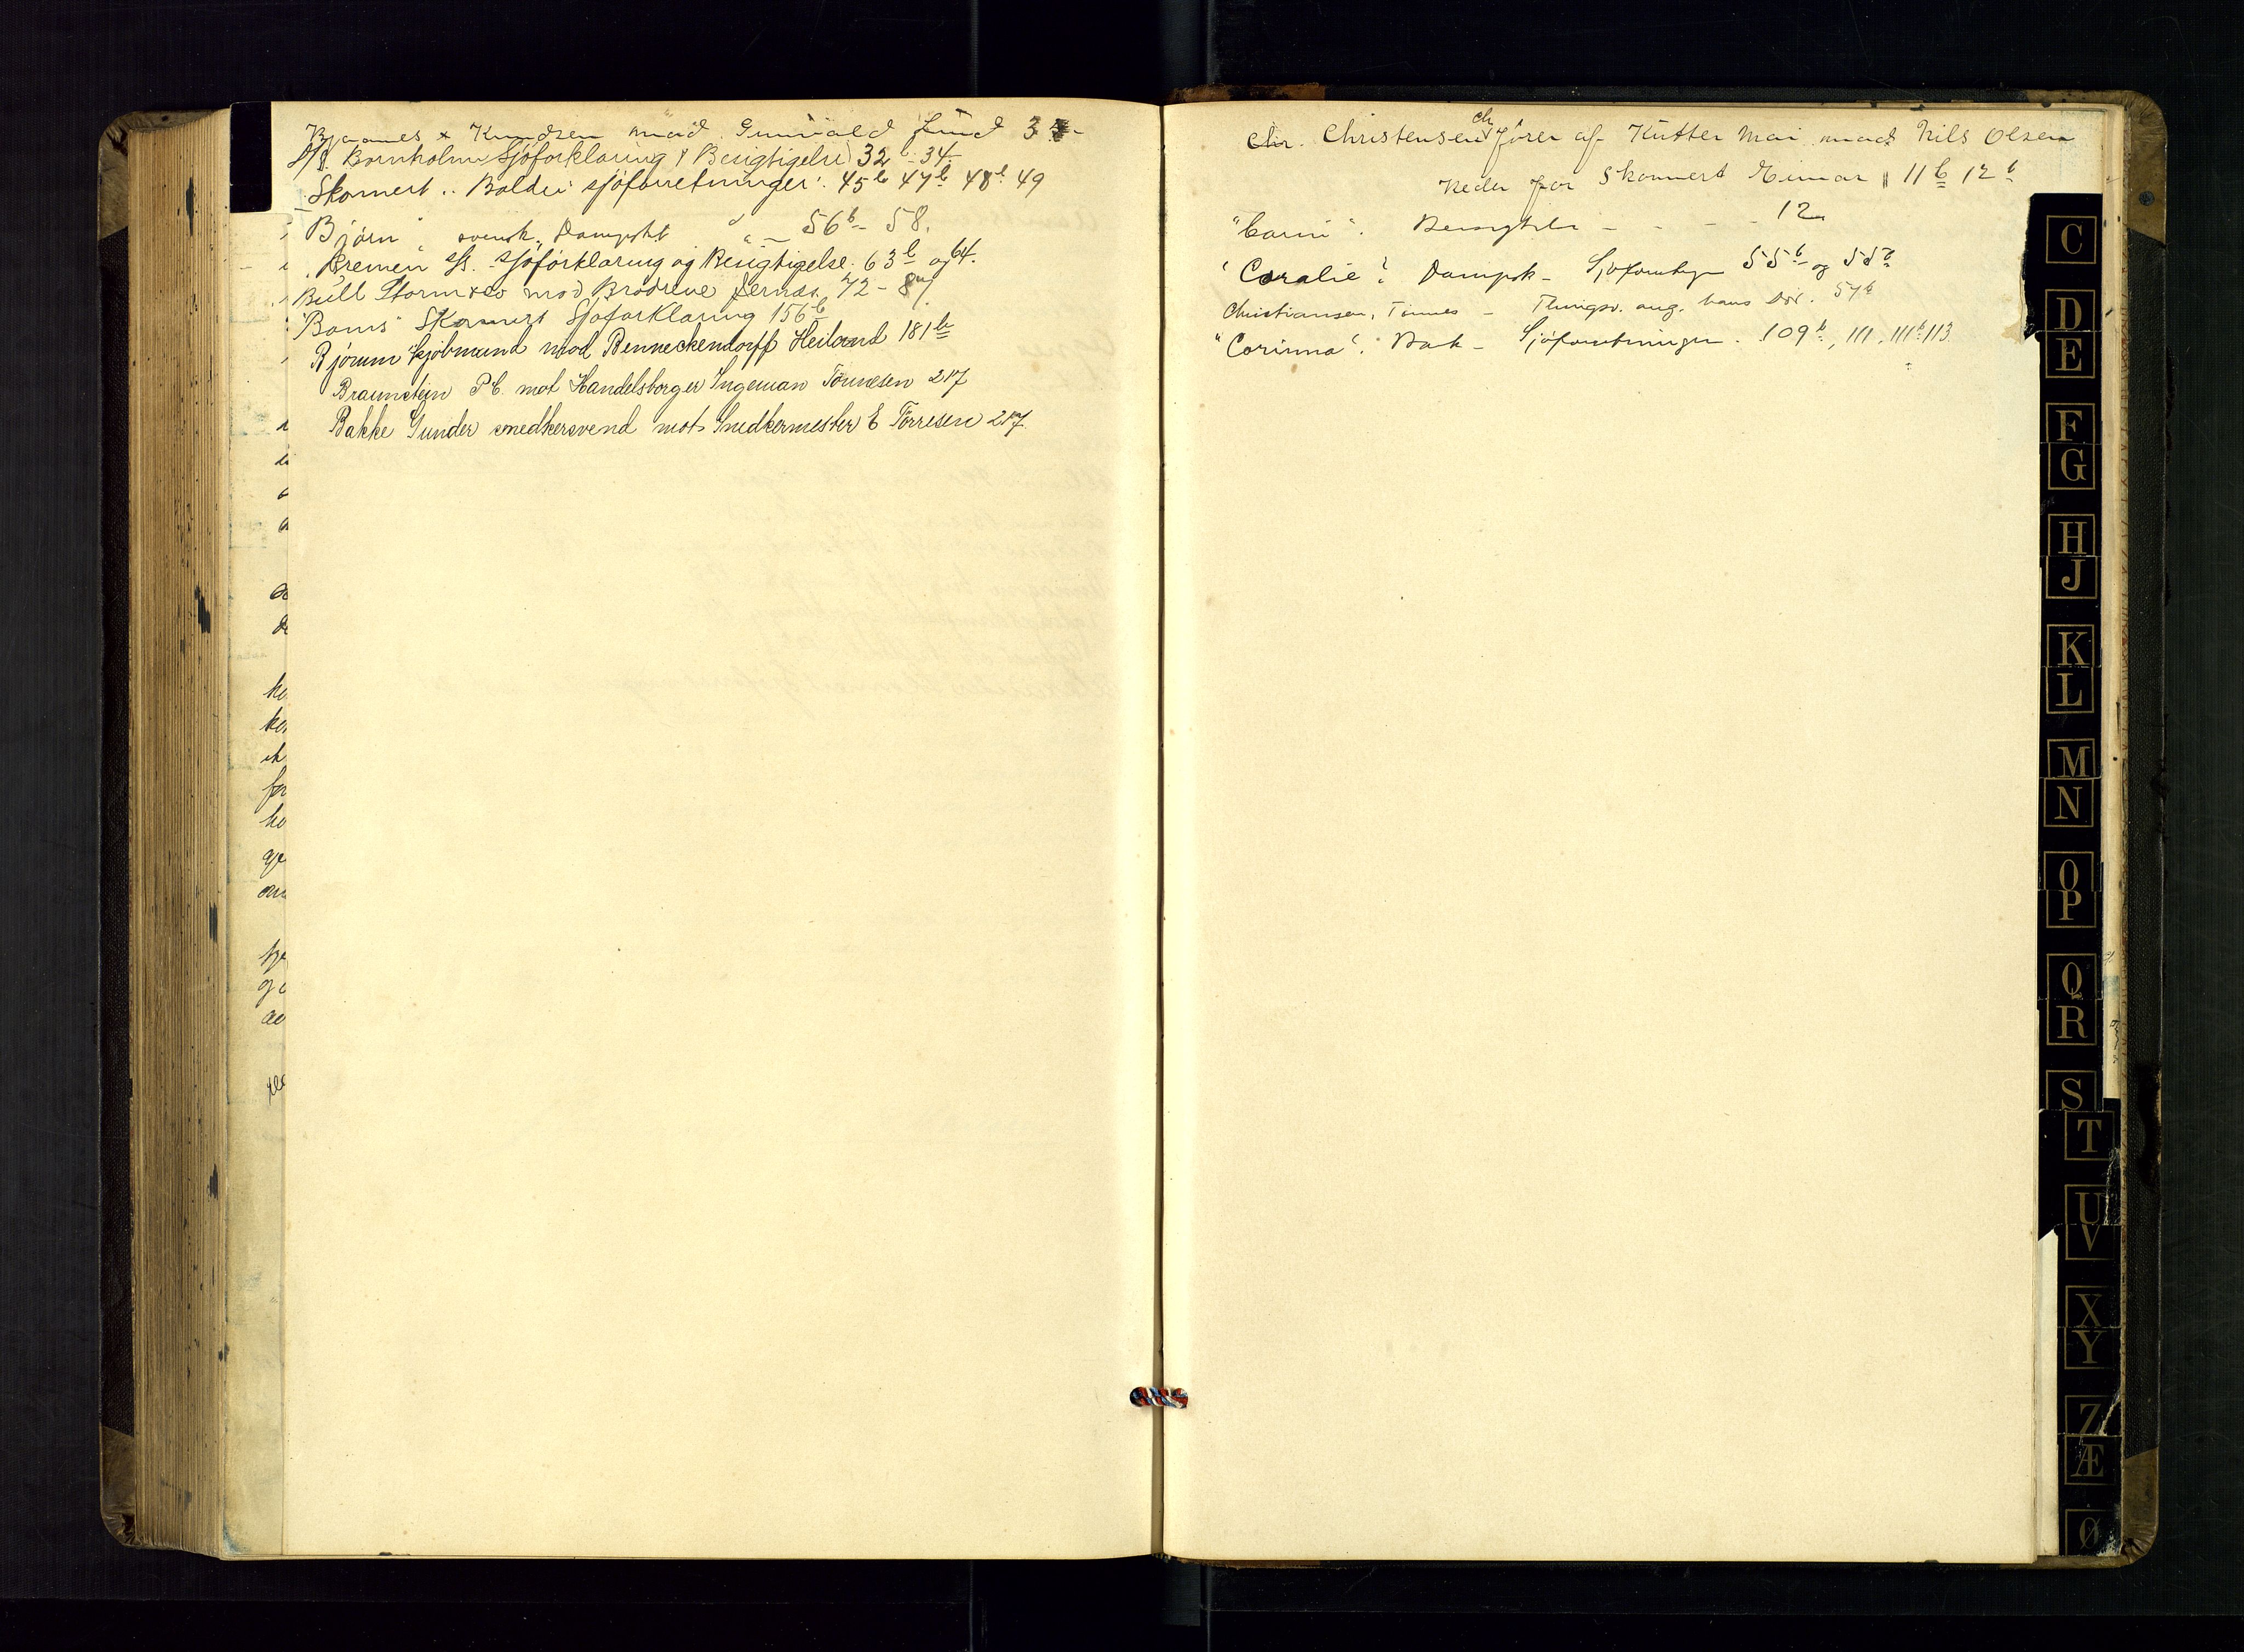 Bjaanes & Knudsen mod Gunvald Lund 3
S/S. Bornholm Sjöforklaring & Besigtigelse 32 b - 34.
Skonnert "Balder" sjöforretninger. 45 b 47 b 48 b 49
Björn svensk Dampskt 56 b - 58.
Bremen s/s. Sjöforklaring og Besigtigelse. 63 b og 64.
Bull Storm & Co mod Brödrene Jernæs. 72 - 87
"Bams" Skonnert Sjöforklaring 156 b
Björum kjöbmand mod Benneckendorff Heiland 181 b
Braunstein P C. mot Handelsborger Ingeman Tönnesen 217
Bakke Gunder snedkersvend mot Snedkermester E Törresen 217
Chr. Christensen Ch fører af Kutter Mai mod Nils Olsen
Reder for Skonnert Einar 11 b 12 b
"Carin". Besigtelse - - - 12
"Coralie". Dampsk - 55 b og
Christiansen, Tinnes - Thingsv. ang. hans Död. 57 b
"Corinna". Bark - Sjöforretninger. 109 b, 111, 111 b 113
C
D
E
F
G
H
J
K
L
M
N
O
P
Q
R
S
T
U
V
X
Y
Z
Æ
Ø